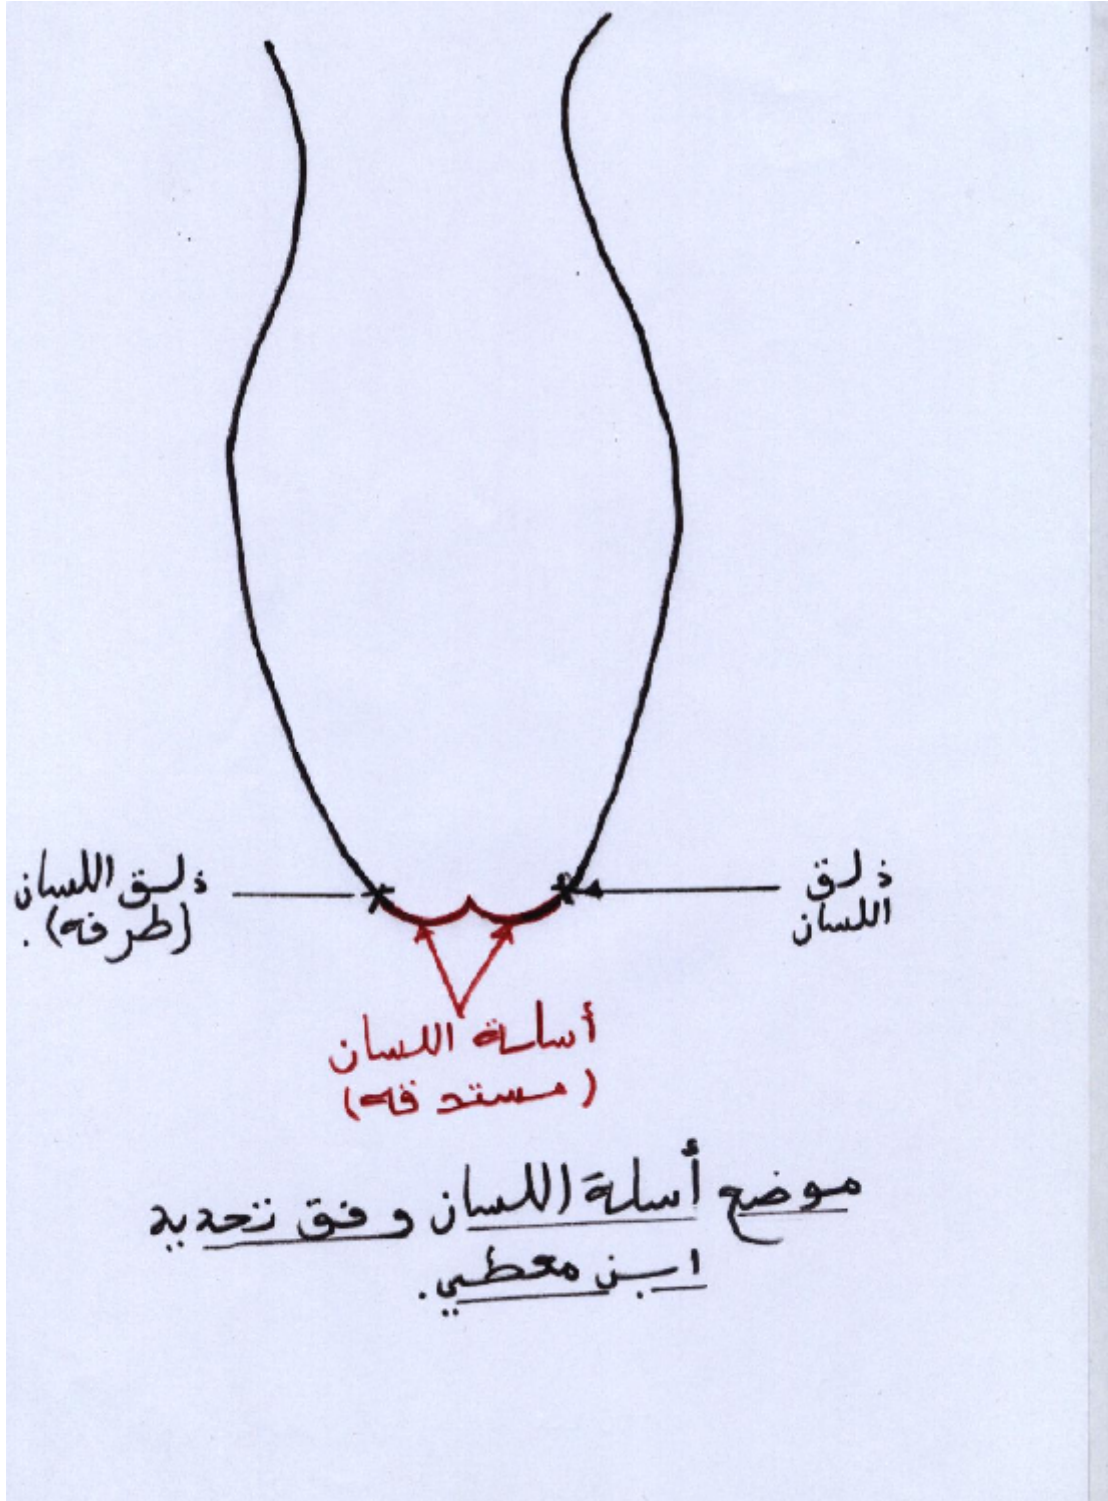 ذلق
اللسان
ذلق اللسان
(طرفه).
أسلة اللسان
(مستدقه)
موضع أسلةَ اللسان وفق تحديد
ابن معطي.